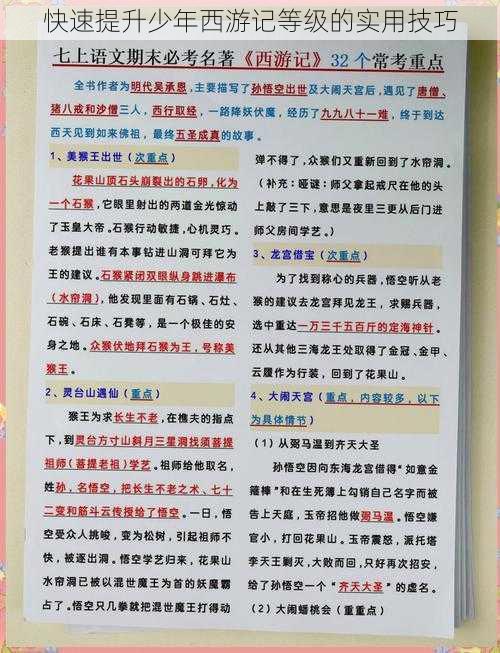 快速提升少年西游记等级的实用技巧
七上语文期末必考名著《西游记》32个常考重点
全书作者为明代吴承恩,主要描写了孙悟空出世及大闹天宫后,遇见了唐僧、
猪八戒和沙僧三人,西行取经,一路降妖伏魔,经历了九九八十一难,终于到达
西天见到如来佛祖,最终五圣成真的故事。
1、美猴王出世(次重点)
花果山顶石头崩裂出的石卵,化为
一个石猴,它眼里射出的两道金光惊动
了玉皇大帝。石猴行动敏捷,心机灵巧。
老猴提出谁有本事钻进山洞可拜它为
王的建议。石猴紧闭双眼纵身跳进瀑布
(水帘洞),他发现里面有石锅、石灶、
石碗、石床、石凳等,是一个极佳的安
身之地。众猴伏地拜石猴为王,号称美
猴王。
2、灵台山遇仙(重点)
猴王为求长生不老,在樵夫的指点
下,到灵台方寸山斜月三星洞找须菩提
祖师(菩提老祖)学艺。祖师给他取名,
姓孙,名悟空,把长生不老之术、七十
二变和筋斗云传授给了悟空。一日,悟
空受众人挑唆,变为松树,引起祖师不
快,被逐出洞。悟空学艺归来,花果山
水帘洞已被以混世魔王为首的妖魔霸
占了。悟空只几拳就把混世魔王打得动
弹不得了,众猴们又重新回到了水帘洞。
(补充:哑谜:师父拿起戒尺在他的头
上敲了三下,意思是夜里三更从后门进
师父房间学艺。)
3、龙宫借宝(次重点)
为了找到称心的兵器,悟空听从老
猴的建议去龙宫拜见龙王,求赐兵器,
选中重达一万三千五百斤的定海神针。
还从其他三海龙王处取得了金冠、金甲、
云履作为行装,回到了花果山。
4、大闹天宫(重点,内容较多,以下
为具体情节)
(1)从弼马温到齐天大圣
孙悟空因向东海龙宫借得“如意金
箍棒”和在生死簿上勾掉自己名字而被
告上天庭,玉帝招他做弼马温。悟空嫌
官小,打回花果山。玉帝震怒,派托塔
李天王剿灭,大败而回,只好再次招安,
给了孙悟空一个“齐天大圣”的虚名。
(2)大闹蟠桃会(重重点)